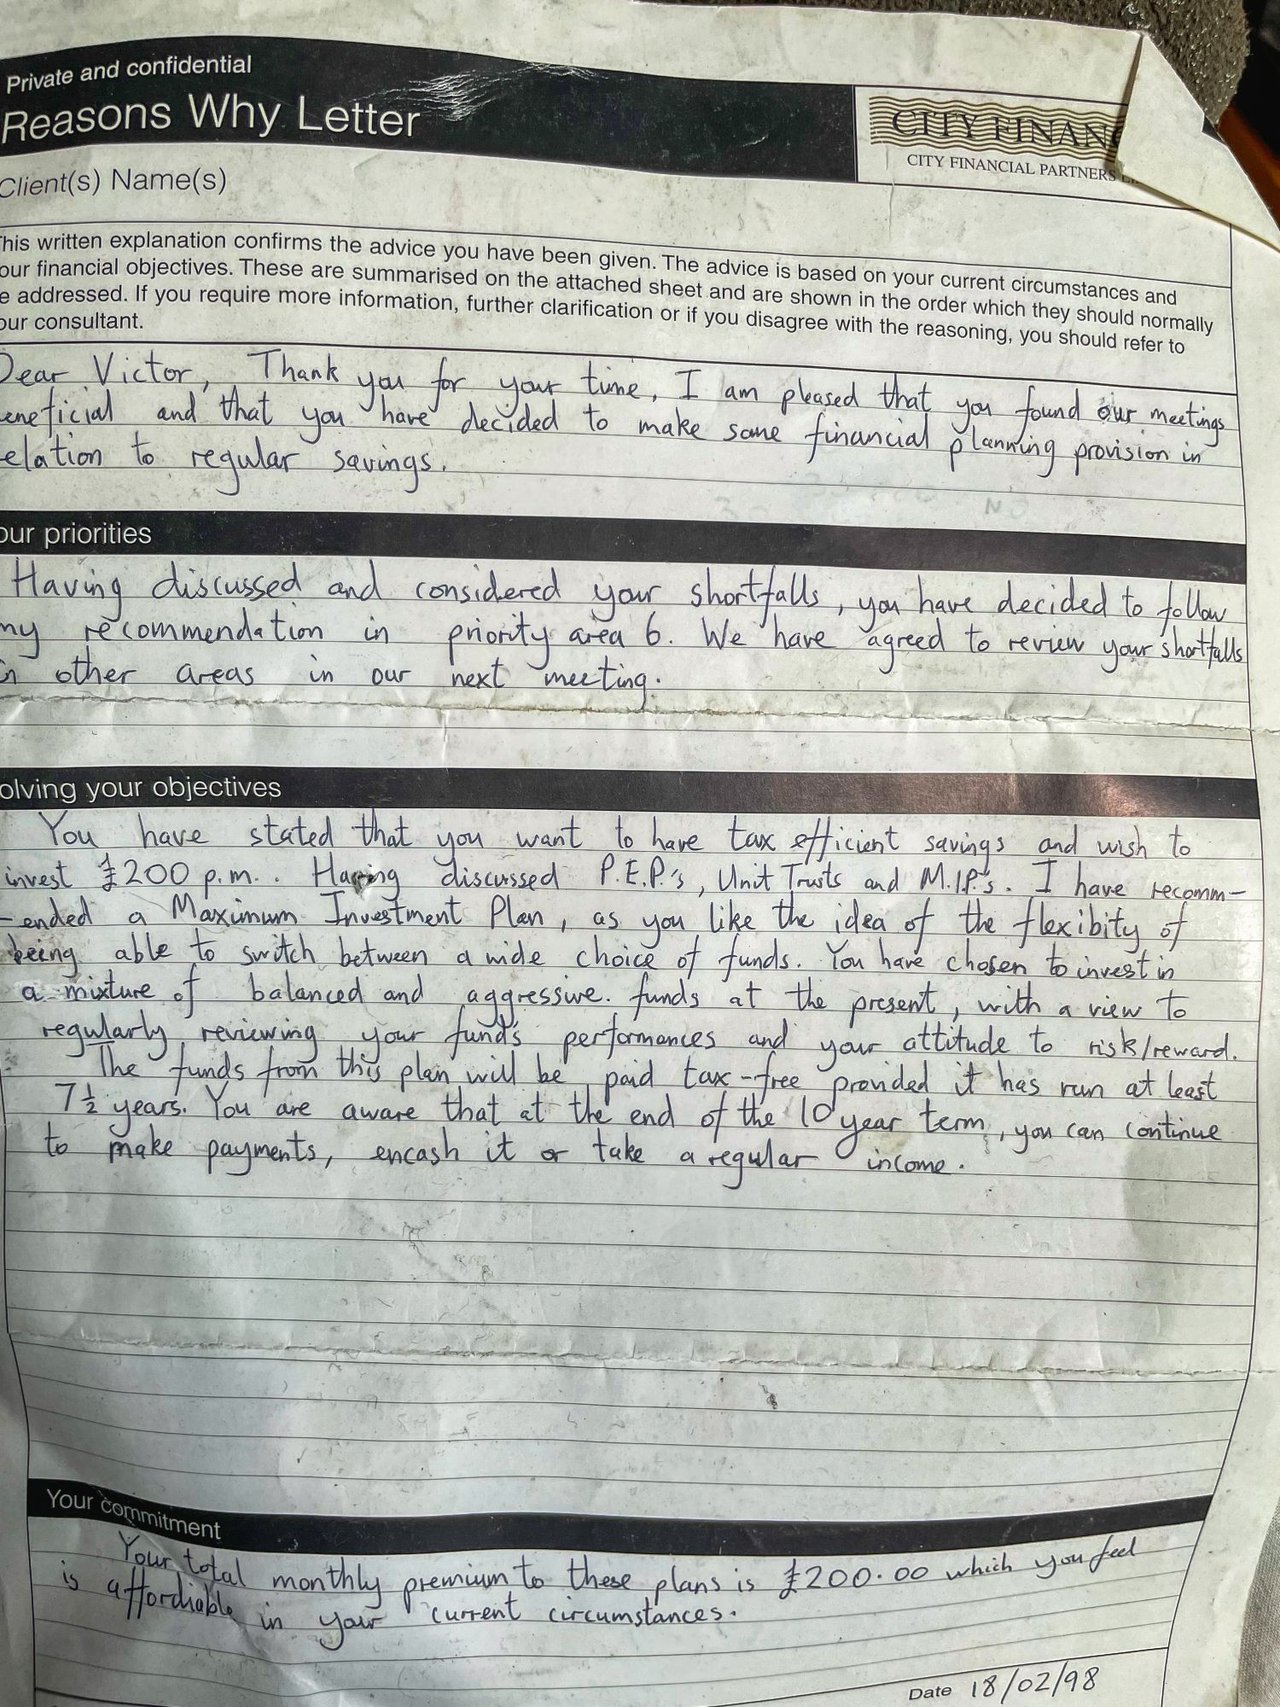 Private and confidential
Reasons Why Letter
CITY FINANC
CITY FINANCIAL PARTNERS
Client(s) Name(s)
his written explanation confirms the advice you have been given. The advice is based on your current circumstances and
our financial objectives. These are summarised on the attached sheet and are shown in the order which they should normally
e addressed. If you require more information, further clarification or if you disagree with the reasoning, you should refer to
our consultant.
Dear Victor, Thank you for your time, I am pleased that you found our meetings
eneficial and that you have decided to make some financial planning provision in
elation to regular savings.
our priorities
Having discussed and considered your shortfalls, you have decided to follow
my recommendation in priority area 6. We have agreed to review your shortfalls
in other areas in our next meeting.
olving your objectives
You have stated that you want to have tax efficient savings and wish to
invest £200 p.m.. Having discussed P.E.P.'s, Unit Trusts and M.I.P.'s. I have recomm-
-ended a Maximum Investment Plan, as you like the idea of the flexibity of
being able to switch between a wide choice of funds. You have chosen to invest in
a mixture of balanced and aggressive. funds at the present, with a view to
regularly reviewing your fund's performances and your attitude to risk/reward.
The funds from this plan will be paid tax-free provided it has run at least
7½ years. You are aware that at the end of the 10 year term, you can continue
to make payments, encash it or take a regular income.
Your commitment
Your total monthly premium to these plans is £200.00 which you feel
is affordiable in your current circumstances.
Date 18/02/98